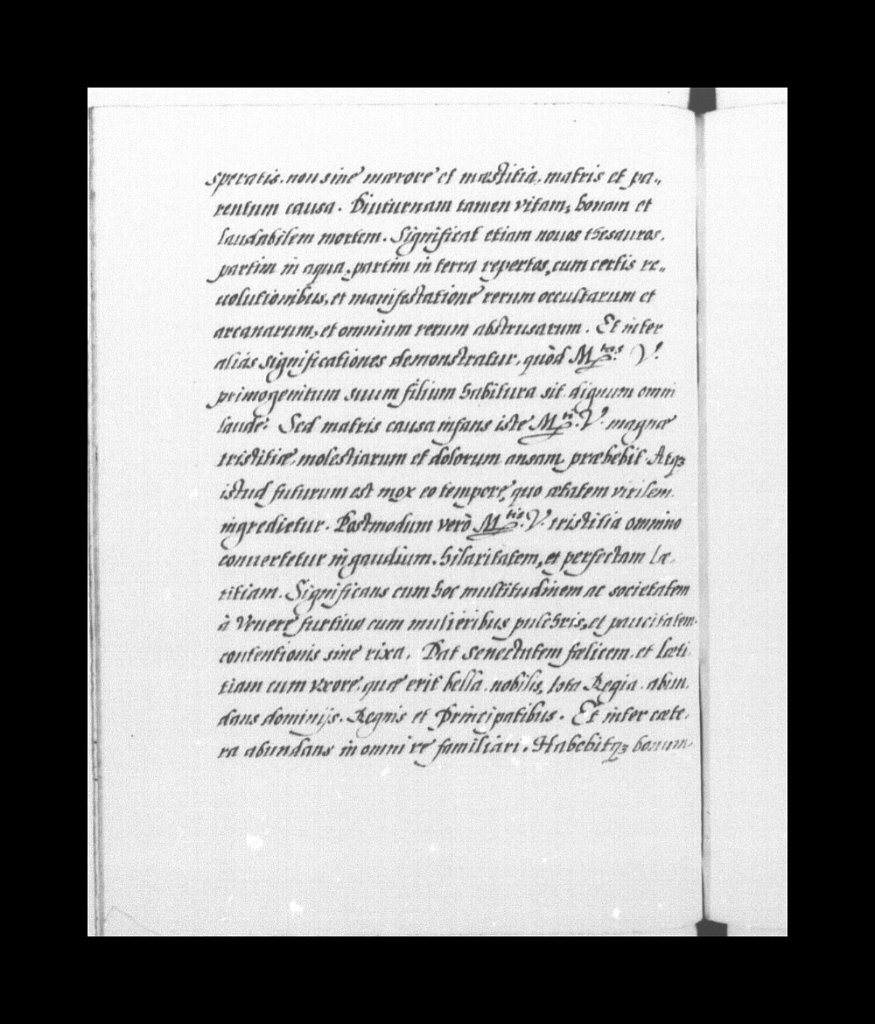 speratis. non sine mærore et mæstitia. matris et pa„
rentum causa. Diuturnam tamen vitam, bonam et
laudabilem mortem. Significat etiam nouos thesauros,
partim in aqua, partim in terra repertos, cum certis re„
uolutionibus, et manifestatione rerum occultarum et
arcanarum, et omnium rerum abstrusarum. Et inter
aliàs significationes demonstratur, quòd M.tas V.
primogenitum suum filium habitura sit dignum omni
laude: Sed matris causa infans iste M.ti V. magnæ
tristitiæ, molestiarum et dolorum ansam præbebit. Atqꝫ
istud futurum est mox eo tempore, quo ætatem virilem
ingredietur. Postmodum verò M.tis V. tristitia omnino
conuertetur in gaudium. hilaritatem, et perfectam læ-
titiam. Significans cum hoc multitudinem ac societatem
à Venere furtiua cum mulieribus pulchris, et paucitatem
contentionis sine rixa. Dat senectutem fælicem. et læti
tiam cum vxore, quæ erit bella. nobilis, tota Regia. abun.
dans dominijs. Regnis et Principatibus. Et inter cæte.
ra abundans in omni re familiari. Habebitqꝫ bonum